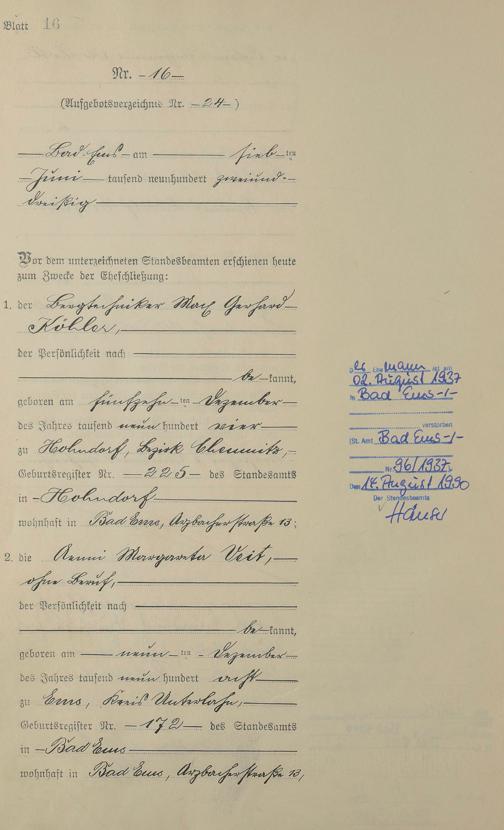 Blatt 16
Nr. 16
(Aufgebotsverzeichnis Nr. 24)
Bad Ems am sieb ten
Juni tausend neunhundert zweiund-
dreißig
Vor dem unterzeichneten Standesbeamten erschienen heute
zum Zwecke der Eheschließung:
1. der Bergtechniker Max Gerhard
Köhler,
der Persönlichkeit nach
be kannt,
geboren am fünfzehn ten Dezember
des Jahres tausend neun hundert vier
zu Hohndorf, Bezirk Chemnitz,
Geburtsregister Nr. 225 des Standesamts
in Hohndorf
wohnhaft in Bad Ems, Arzbacherstraße 13;
2. die Aenni Margareta Veit,
ohne Beruf,
der Persönlichkeit nach
be kannt,
geboren am neun ten Dezember
des Jahres tausend neun hundert acht
zu Ems, Kreis Unterlahn,
Geburtsregister Nr. 172 des Standesamts
in Bad Ems
wohnhaft in Bad Ems, Arzbacherstraße 13,
Der Ehemann ist am
02. August 1937
in Bad Ems -/-
verstorben
(St. Amt Bad Ems -/-
Nr. 96/1937.
Den 14. August 1990
Der Standesbeamte